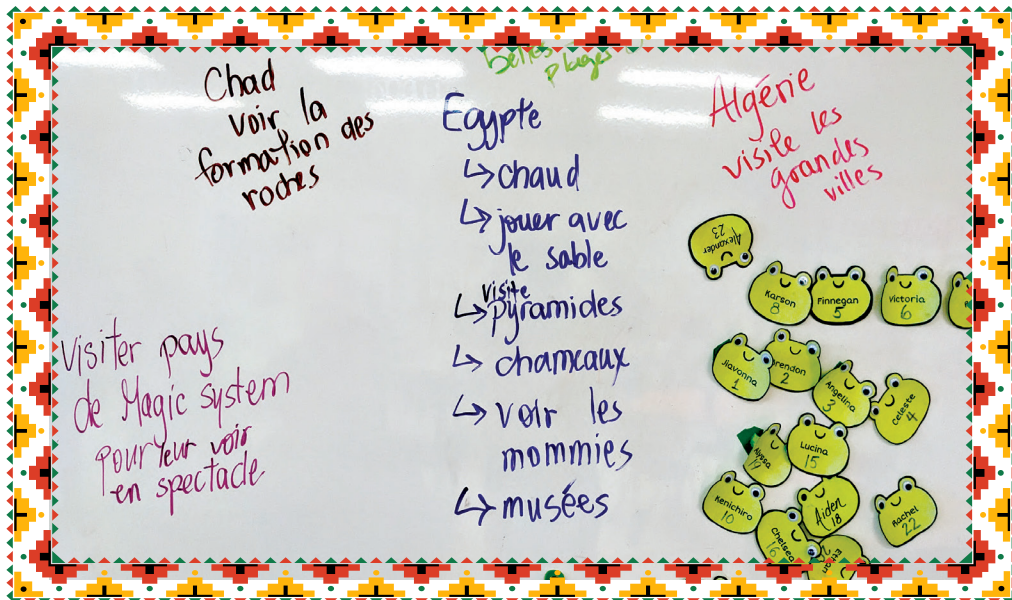 belles
plages
Chad
voir la
formation des
roches
Egypte
↳ chaud
↳ jouer avec
le sable
visite
↳ pyramides
↳ chameaux
↳ voir les
mommies
↳ musées
Algérie
visite les
grandes
villes
Visiter pays
de Magic system
pour leur voir
en spectacle
Alexander
23
Karson
8
Finnegan
5
Victoria
6
Jiavonna
1
rendon
2
Angelina
3
Celeste
4
Alyssa
Lucina
15
Kenichiro
10
Aiden
18
Rachel
22
Chelsea
16